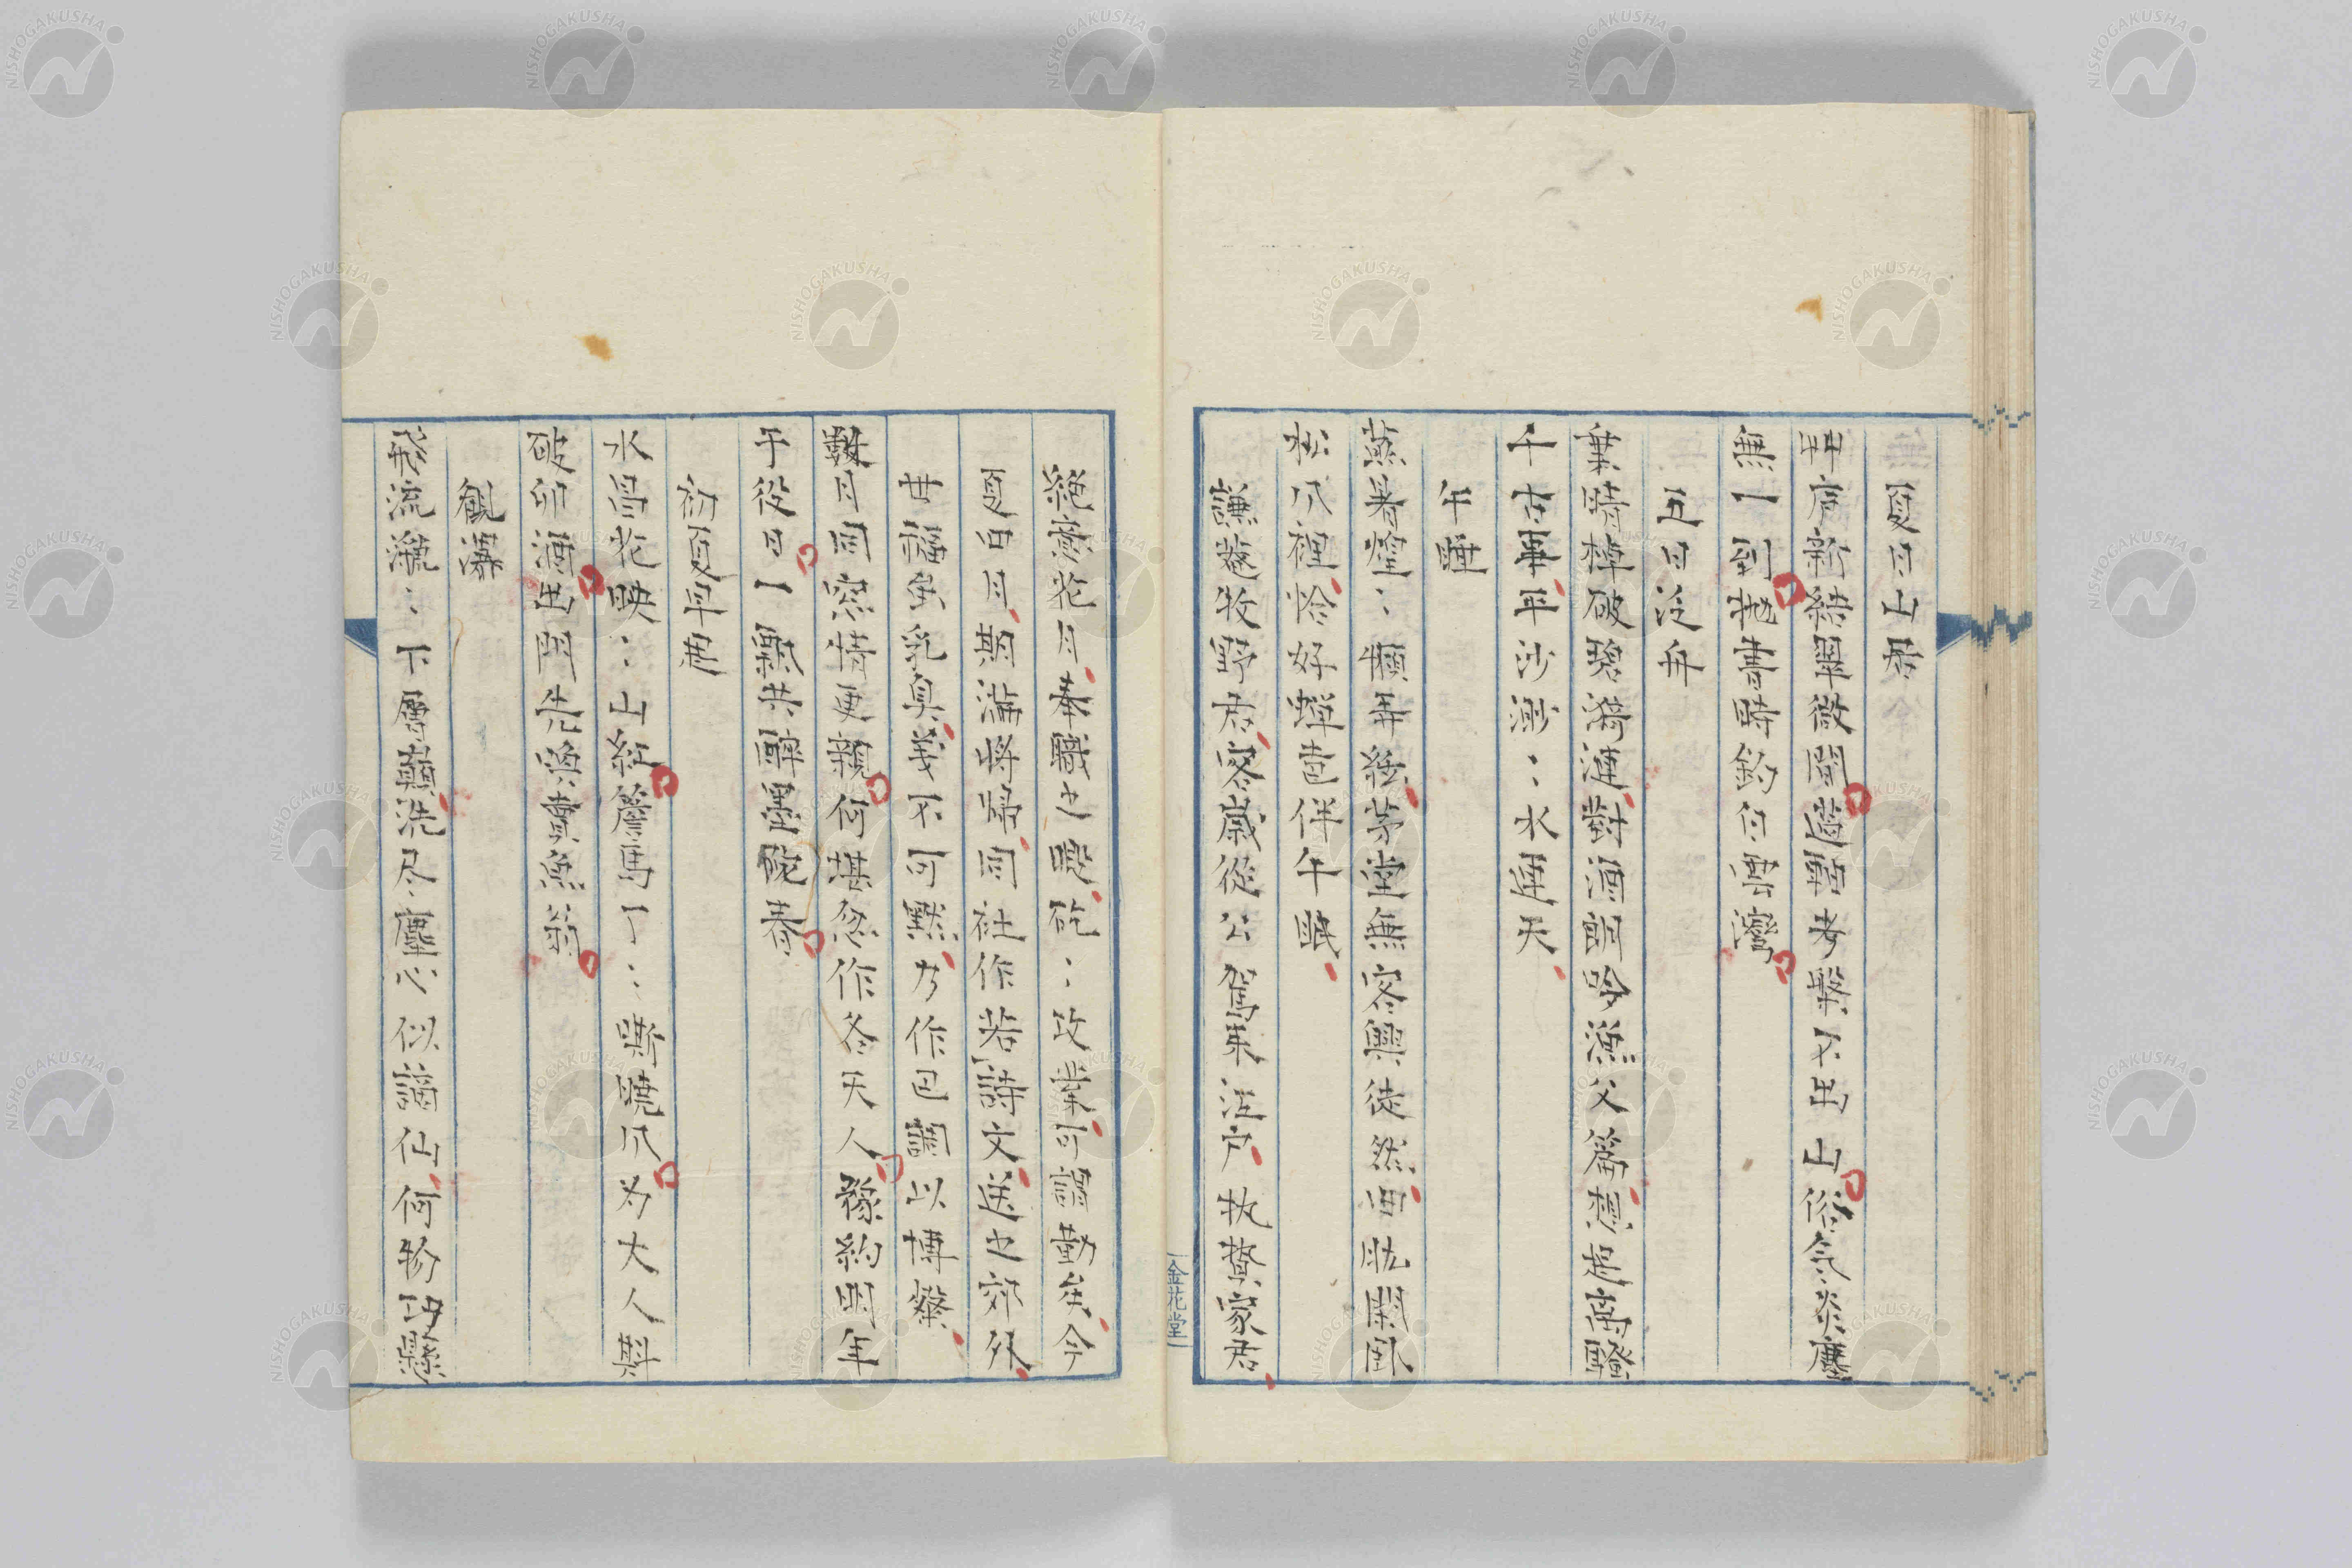 夏日山居
艸席新繞翠微間遺軸考槃不出山俗氣炎塵
無一到抛書時釣白雲灣
五日泛舟
乗晴棹破碧漪漣對酒朗吟漁父篇想是獨醒
千古事平沙渺〻水連天
午睡
蒸暑煌〻懶再絃茅堂無客興徒然曲肱閑臥
松爪裡恰好蟬声伴午眠
謙菴牧野君客歳從公駕来江戸執贄家君
絶意花月奉職之暇矻〻攻業可謂勤矣今
夏四月期満将歸同社作若詩文送之郊外
世襦虽乳臭義不可黙乃作已調以博粲
数月同窓情更親何堪忽作各天人豫約明年
予役日一樂共醉墨陀春
初夏早起
水晶花映〻山紅簷馬丁〻嘶曉爪为大人斟
破卯酒出門先喚賣魚翁
観瀑
飛流瀧〻下層巓洗尽塵心似謫仙何物功懸
金花堂
NISHOGAKUSHA